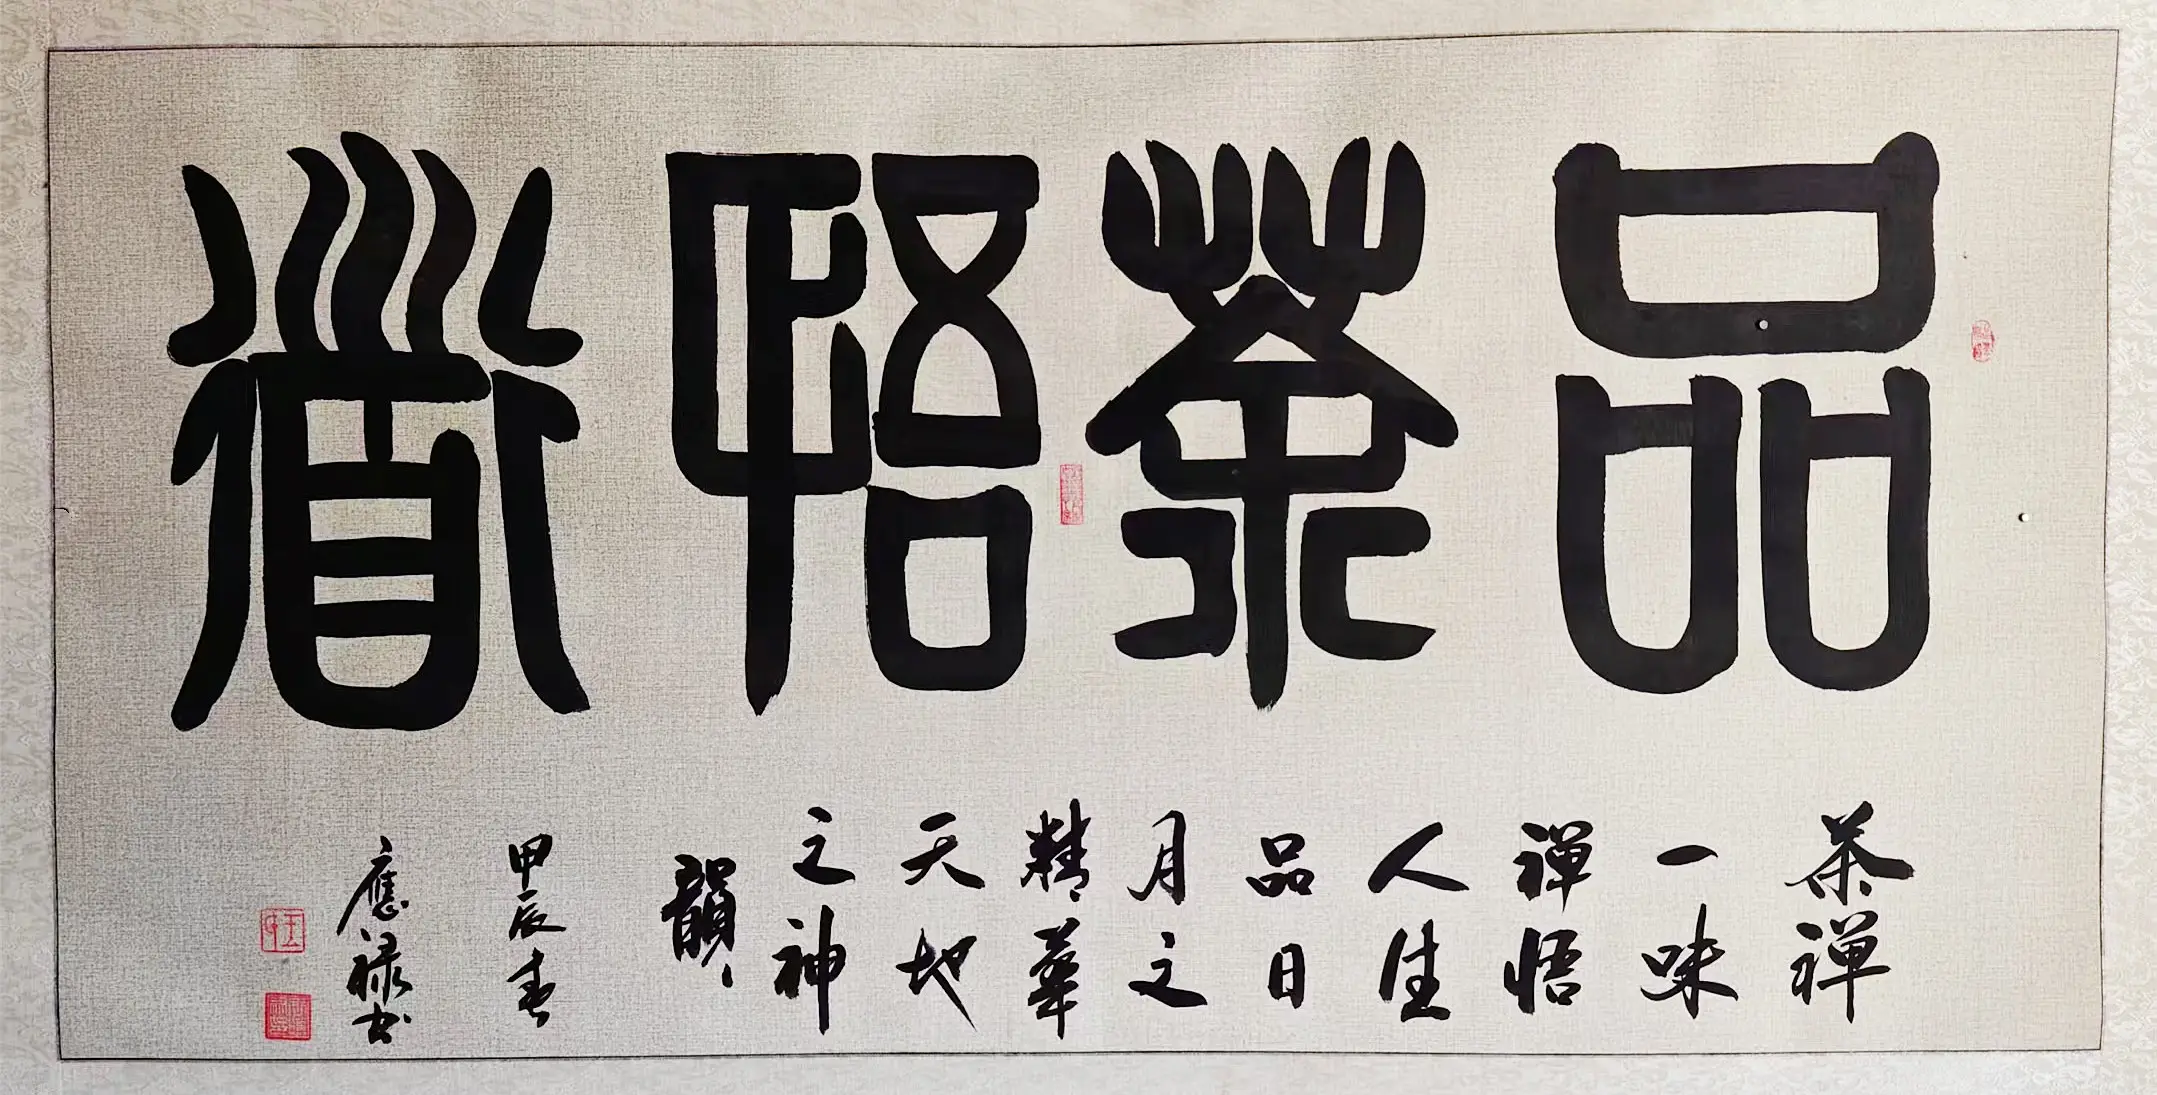 品茶悟道
茶禅
一味
禅悟
人生
品日
月之
精華
天地
之神
韻
甲辰春
應禄书